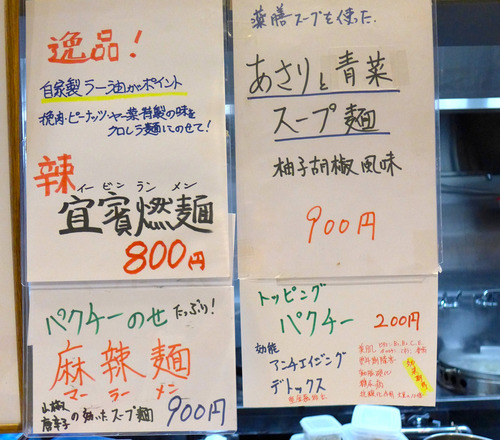 逸品！
自家製ラー油がポイント
挽肉・ピーナッツ・ヤー菜・特製の味を
クロレラ麺にのせて！
辣
イービンランメン
宜賓燃麺
800円
薬膳スープを使った
あさりと青菜
スープ麺
柚子胡椒風味
900円
パクチーのせ たっぷり！
麻辣麺
マーラーメン
山椒
唐辛子の効いたスープ麺 900円
トッピング
パクチー 200円
効能
アンチエイジング
デトックス